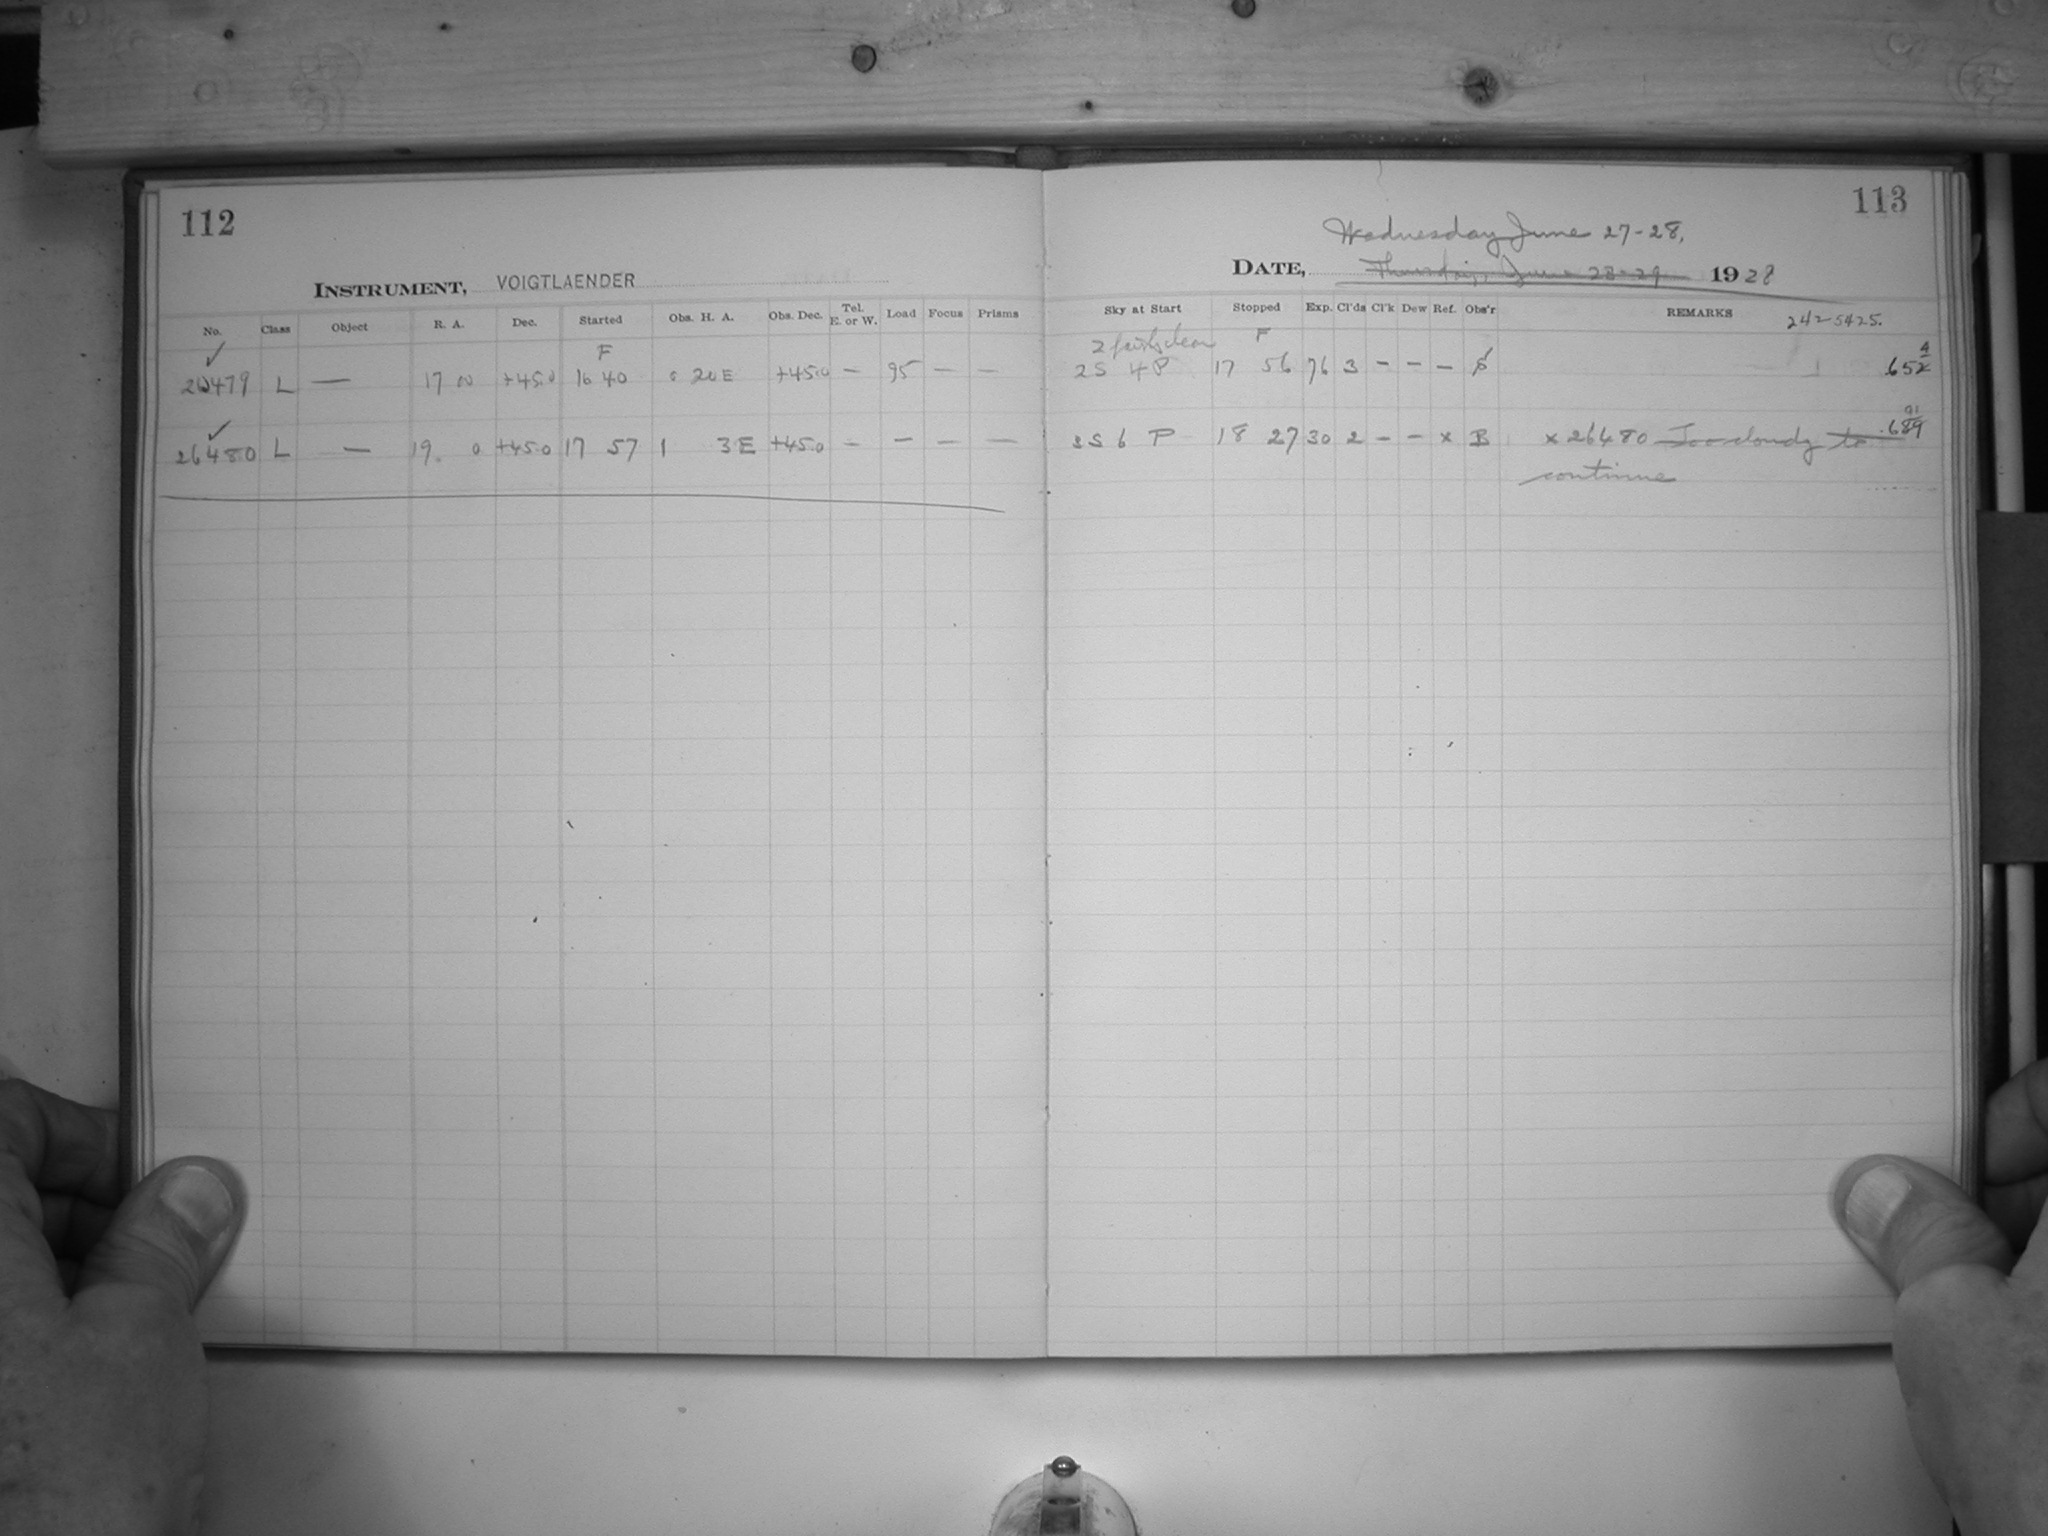 112
INSTRUMENT, VOIGTLAENDER
No. Class Object R. A. Dec. Started Obs. H. A. Obs. Dec. Tel. E. or W. Load Focus Prisms
F
✓
26479 L — 17 00 +45.0 16 40 0 20 E +45.0 — 95 — —
✓
26480 L — 19 0 +45.0 17 57 1 3 E +45.0 – – — —
113
Wednesday June 27-28,
DATE, Thursday, June 28-29 1928
Sky at Start Stopped Exp. Cl'ds Cl'k Dew Ref. Obs'r REMARKS 242-5425.
2 fairly clear F
2 S 4 P 17 56 76 3 – – – .652 4
3 S 6 P 18 27 30 2 – – x B x 26480 Too cloudy to .689 91
continue